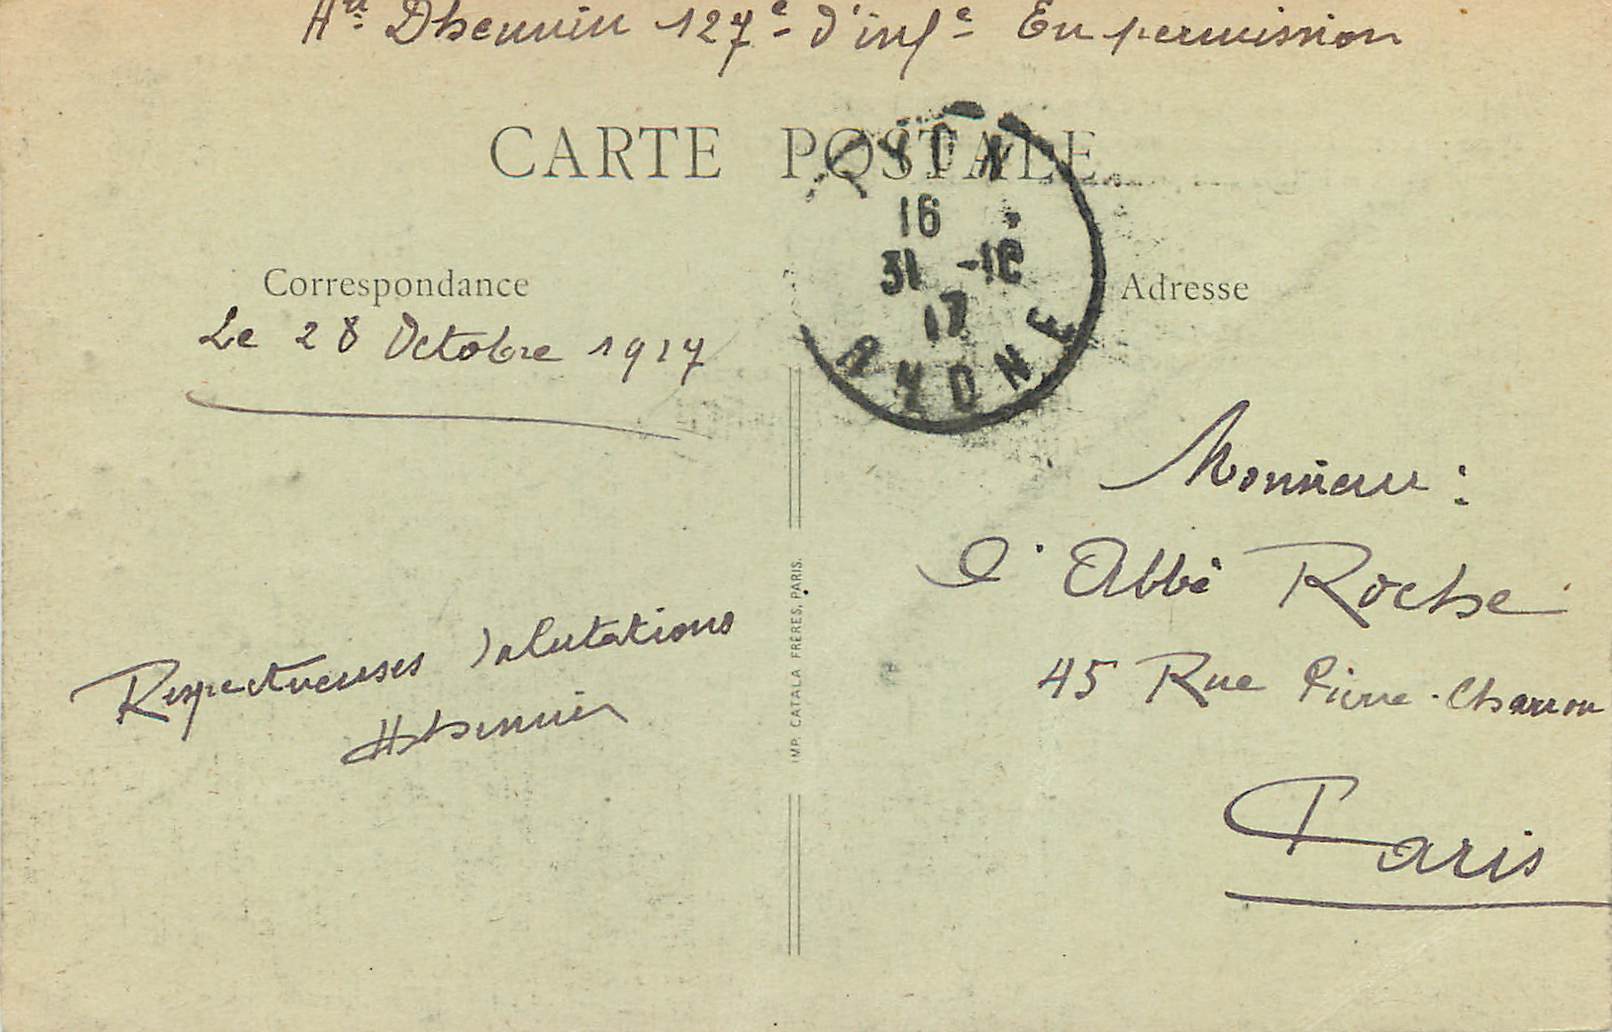 Hri Dhennin 127e d'infe En permission
CARTE POSTALE
LYON
16
31 -10
17
RHONE
Correspondance
Adresse
Le 28 Octobre 1917
Respectueuses salutations
HDhennin
IMP. CATALA FRÈRES, PARIS.
Monsieur :
l'Abbé Roche
45 Rue Pierre-Charron
Paris